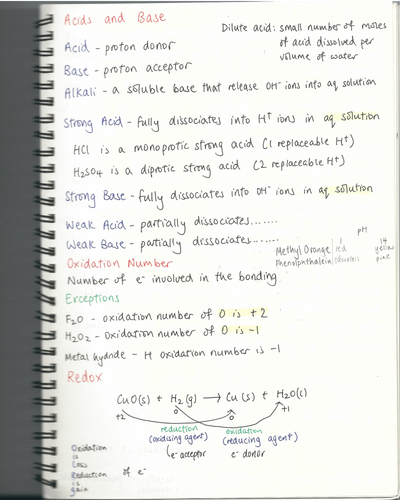 Acids and Base
Dilute acid: small number of moles
of acid dissolved per
volume of water
Acid - proton donor
Base - proton acceptor
Alkali - a soluble base that release OH⁻ ions into aq solution
Strong Acid - fully dissociates into H⁺ ions in aq solution
HCl is a monoprotic strong acid (1 replaceable H⁺)
H₂SO₄ is a diprotic strong acid (2 replaceable H⁺)
Strong Base - fully dissociates into OH⁻ ions in aq solution
Weak Acid - partially dissociates.......
Weak Base - partially dissociates.......
pH
1 14
Methyl Orange red yellow
Phenolphthalein colourless pink
Oxidation Number
Number of e⁻ involved in the bonding
Exceptions
F₂O - oxidation number of O is +2
H₂O₂ - oxidation number of O is -1
Metal hydride - H oxidation number is -1
Redox
CuO(s) + H₂(g) → Cu(s) + H₂O(l)
+2 0 0 +1
reduction oxidation
(oxidising agent) (reducing agent)
e⁻ acceptor e⁻ donor
Oxidation
is
loss
Reduction of e⁻
is
gain